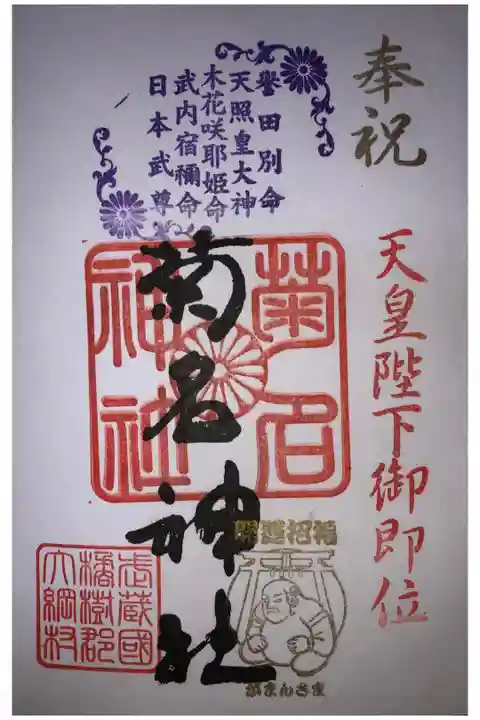 奉祝
天皇陛下御即位
誉田別命
天照皇大神
木花咲耶姫命
武内宿禰命
日本武尊
菊名神社
菊名
神社
開運招福
がまんさま
武蔵國
橘樹郡
大綱村